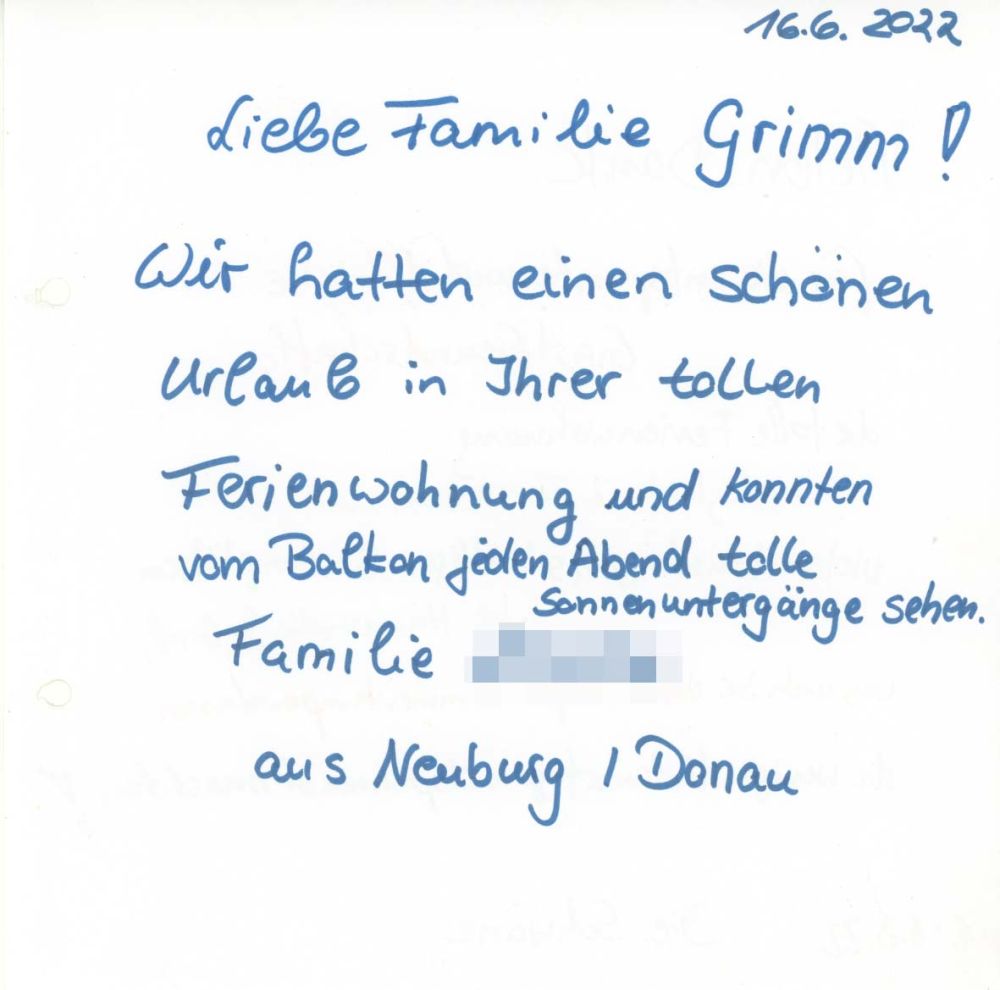 16.6. 2022
Liebe Familie Grimm!
Wir hatten einen schönen
Urlaub in Ihrer tollen
Ferienwohnung und konnten
vom Balkon jeden Abend tolle
Sonnenuntergänge sehen.
Familie
aus Neuburg / Donau